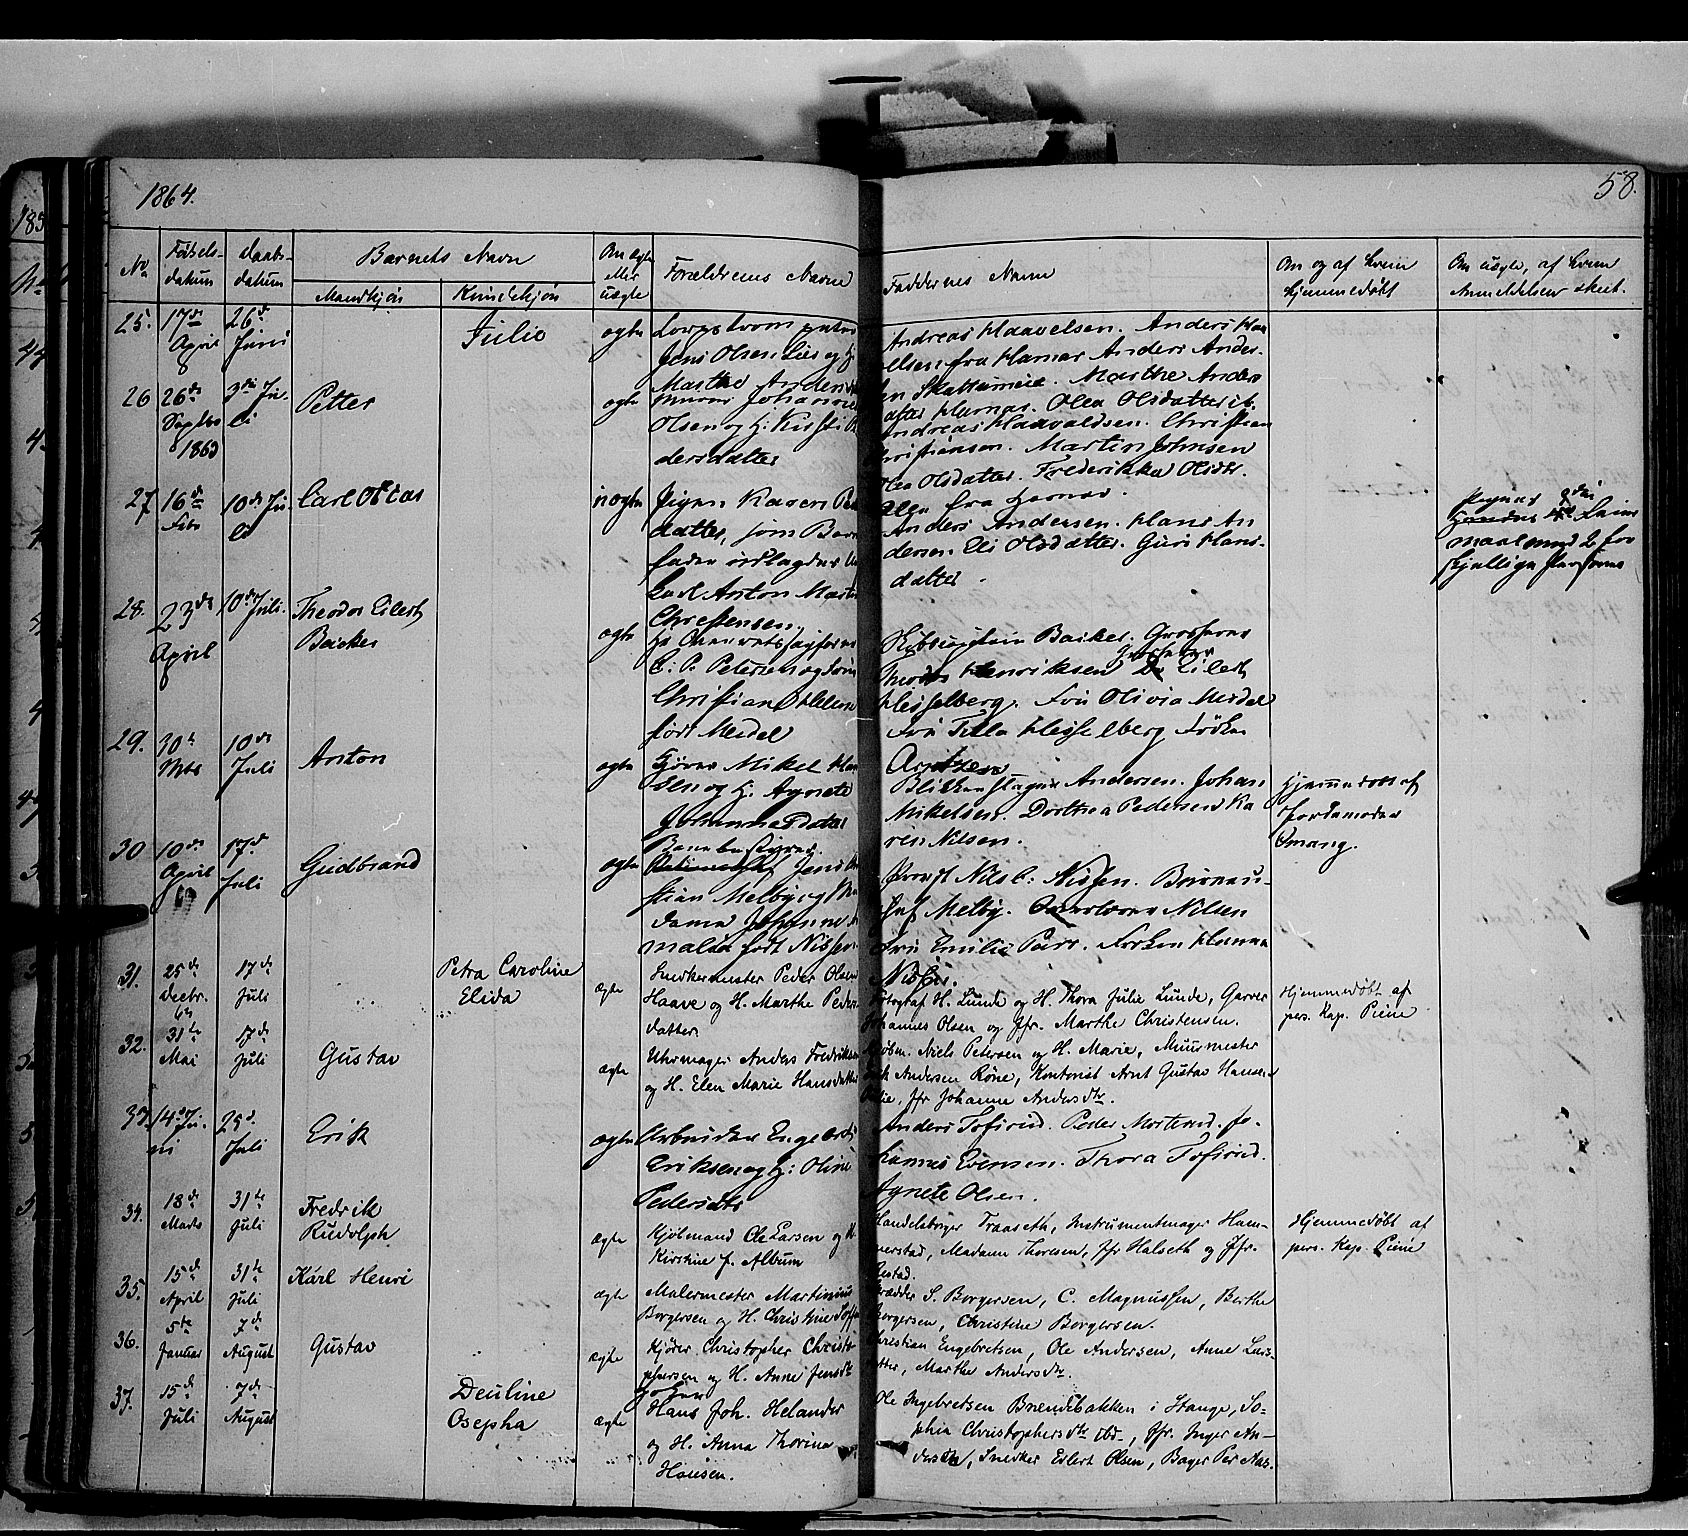 1864.
58.
No
Fødsels-
datum
Daabs-
datum
Barnets Navn
Mandkjøn
Kvindekjøn
Om ægte
eller
uægte
Forældrenes Navne
Faddernes Navne
Om og af hvem
hjemmedøbt
Om uægte, af hvem
Anmeldelsen skeet.
25.
17de
April
26de
Juni
Julie
ægte
Jens Olsen Lie og H.
Marthe Anders
Andreas Haavelsen. Anders Haa
elsen fra Hamar Anders Anders.
Marthe Anders
datter Hamar. Olea Olsdatter ib.
26
26de
Septbr
1863
3die Ju-
li
Petter
ægte
Murer Johannes
Olsen og H. Kirsti
dersdatter
Andreas Haavaldsen. Christian
Christianson. Martin Johnsen
Olea Olsdatter. Frederikke Olsdtr.
fra Hamar.
27
16de
Febr
10de Ju-
li
Carl Oscar
uægte
Pigen Karen Ped
datter, som Barne
fader udlagdes
Carl Anton Martin
Christensen.
Anders Andersen. Hans An
dersen. Eli Olsdatter. Guri Hans-
datter.
Pigens 2det Leier
maal med 2 for
skjellige Personer
28.
23de
April
10de Juli.
Theodor Eilert
Backer
ægte
C. P. Petersen og
Christiane Helene
født Meidel
Backer. Grosserer
Thomas Henriksen Grosserer Eilert
Hesselberg. Fru Olivia Meidel
Fru Hesselberg Frøken
Arntzen
29.
30te
Mts
10de
Juli
Anton
ægte
Gjører Mikel Han
sen og H. Agnete
Johannesdatter
Blikkenslager Andersen. Johan
Mikelsen. Dorthea Pedersen Ka
ren Nilsen.
Hjemmedøbt af
Jordemoder
Smang.
30
10de
April
17de
Juli
Gudbrand
ægte
Banebestyrer
Jens
stian Melby og Ma
dame Johanne A
malia født Nissen
Provst Nils C. Nissen. Bureau-
chef Melby. Nilsen
Fru Emilie Frøken Hanna
Nissen.
31.
25de
Decbr.
63
17de
Juli
Petra Caroline
Elida
ægte
Snedkermester Peder Olsen
Haave og H. Marthe Peders
datter
Fotograf H. Lunde og H. Thora Julie Lunde, Garver
Johannes Olsen og Jfr. Marthe Christensen.
Hjemmedøbt af
pers. Kap. Piene
32.
31te
Mai
17de
Juli
Gustav
ægte
Uhrmager Anders Fredriksen
og H. Elen Marie Hansdatter
Kjøbm. Niels Petersen og H. Marie, Muurmester
Andersen Røne, Kontorist Arnt Gustav Hansen
Jfr Johanne Andersdtr.
33.
14de Ju-
ni
25de
Juli
Erik
ægte
Arbeider Engebret
Eriksen og H: Oline
Pedersdtr
Anders Tofsrud. Peder Mortsrud. Jo-
hannes Evensen. Thora Tofsrud.
Agnete Olsen.
34.
18de
Marts
31te
Juli
Fredrik
Rudolph
ægte
Kjøbmand Ole Larsen og H.
Kirstine f. Album
Handelsborger Fraaseth, Instrumentmager Ham-
merstad, Madame Thoresen, Jfr Halseth og Jfr.
Hjemmedøbt af
pers. Kap. Piene
35.
15de
April
31te
Juli
Karl Henri
ægte
Malermester Martinius
Borgersen og H. Christine Sofie
S. Borgersen, C. Magnussen, Berthe
Borgersen, Christine Borgersen.
36.
5te
Januar
7de
August
Gustav
ægte
Kjører Christopher Christo
phersen og H. Anne Jensdtr
Christian Engebretsen, Ole Andersen, Anne Lars-
datter, Marthe Andersdtr.
37.
15de
Juli
7de
August
Deuline
Osepha
ægte
Hans Joh. Helander
og H. Anna Thorine
Hansen.
Ole Ingebretsen Brændebakken i Stange, So-
phie Christophersdtr ibd., Jfr. Inger An-
dersdtr, Snedker Edlert Olsen, Bager Per Aas.